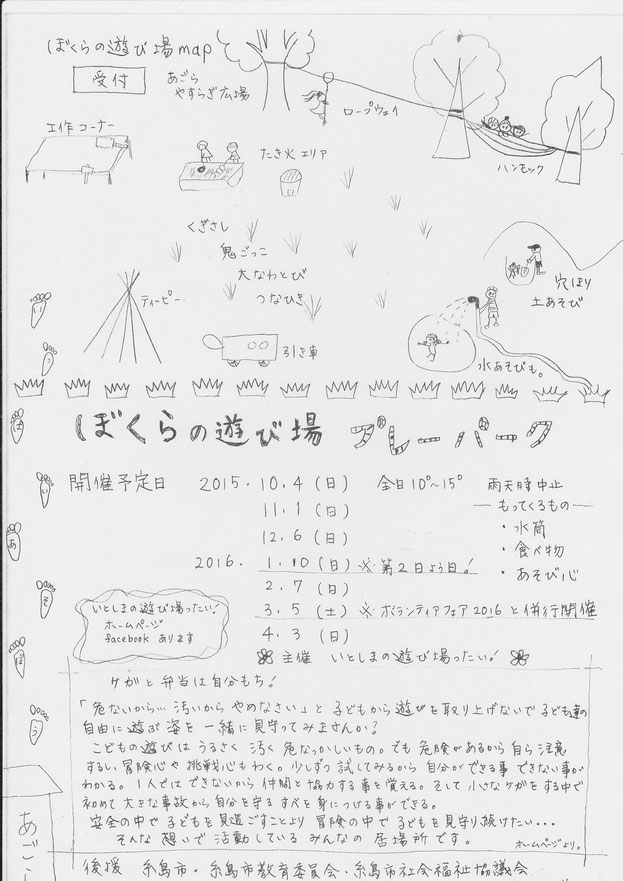 ぼくらの遊び場map
受付
あごら
やすらぎ広場
ロープウェイ
ハンモック
工作コーナー
たき火エリア
くぎさし
鬼ごっこ
大なわとび
つなひき
ティーピー
引き車
穴ほり
土あそび
水あそびも。
ぼくらの遊び場 プレーパーク
開催予定日 2015.10.4(日) 全日10°~15° 雨天時中止
11.1(日)
12.6(日)
2016. 1.10(日)※第2日よう日!
2.7(日)
3.5(土)※ボランティアフェア2016と併行開催
4.3(日)
―もってくるもの―
・水筒
・食べ物
・あそび心
いとしまの遊び場ったい!
ホームページ
facebook あります
主催 いとしまの遊び場ったい!
ケガと弁当は自分もち!
「危ないから…汚いから やめなさい」と子どもから遊びを取り上げないで子ども達の
自由に遊ぶ姿を一緒に見守ってみませんか?
こどもの遊びは うるさく 汚く 危なっかしいもの。でも 危険があるから自ら注意
するい冒険心や挑戦心もわく。少しずつ試してみるから自分ができる事できない事が
わかる。1人ではできないから仲間と協力する事を覚える。そして小さなケガをする中で
初めて大きな事故から自分を守るすべを身につける事ができる。
安全の中で子どもを見過ごすとより 冒険の中で子どもを見守り続けたい…
そんな想いで活動しているみんなの居場所です。
ホームページより。
後援 糸島市・糸島市教育委員会・糸島市社会福祉協議会
い
こ
う
よ
あ
そ
ぼ
う
あご